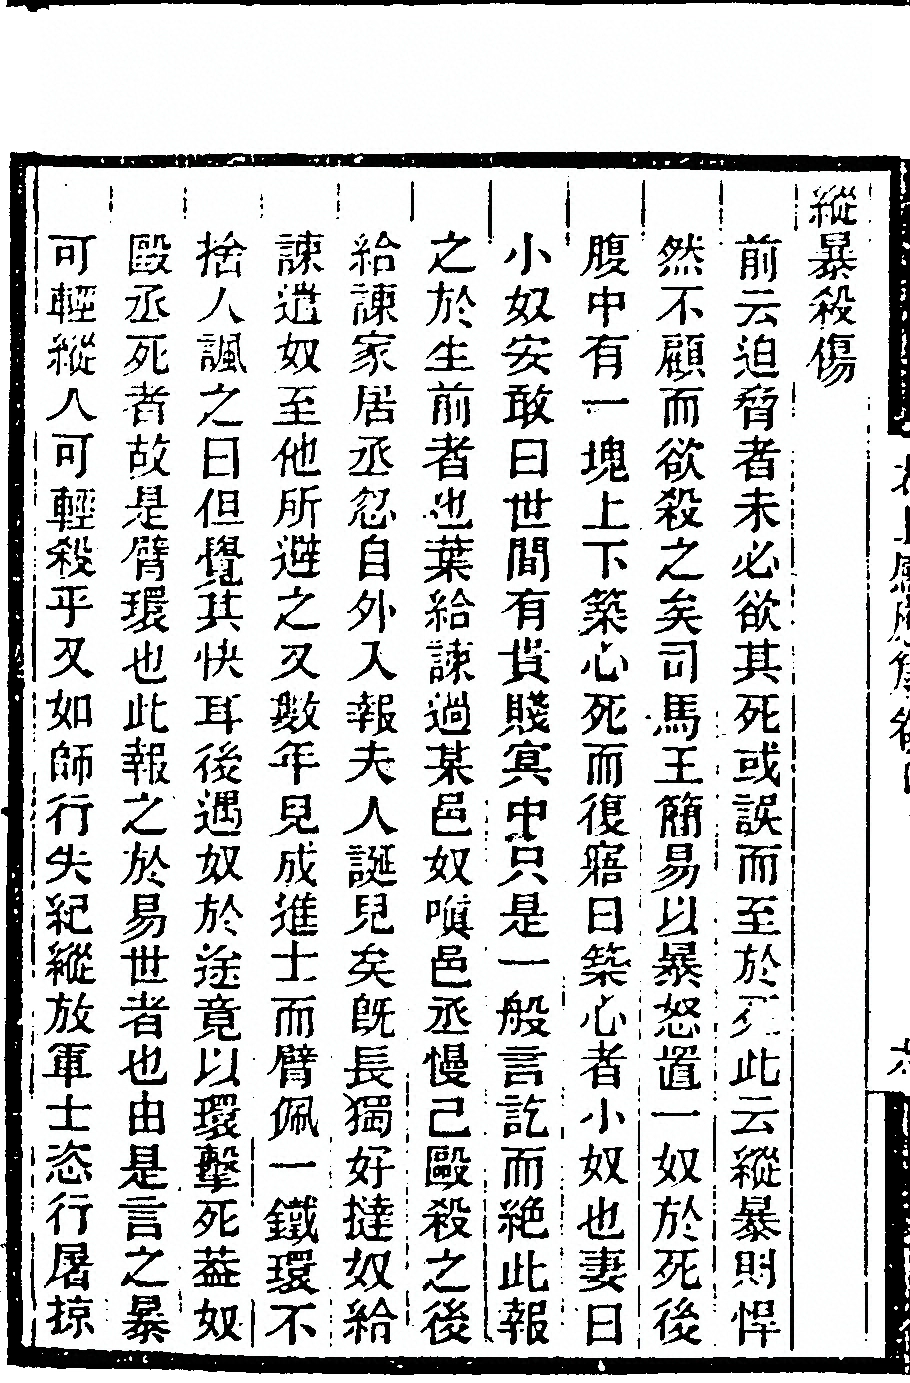 縱暴殺傷
前云迫脅者未必欲其死或誤而至於死此云縱暴則悍
然不顧而欲殺之矣司馬王簡易以暴怒置一奴於死後
腹中有一塊上下築心死而復寤曰築心者小奴也妻曰
小奴安敢曰世間有貴賤冥中只是一般言訖而絕此報
之於生前者也葉給諫過某邑奴嗔邑丞慢己毆殺之後
給諫家居丞忽自外入報夫人誕兒矣旣長獨好撻奴給
諫遣奴至他所避之又數年見成進士而臂佩一鐵環不
捨人諷之曰但覺其快耳後遇奴於途竟以環擊死葢奴
毆丞死者故是臂環也此報之於易世者也由是言之暴
可輕縱人可輕殺乎又如師行失紀縱放軍士恣行屠掠